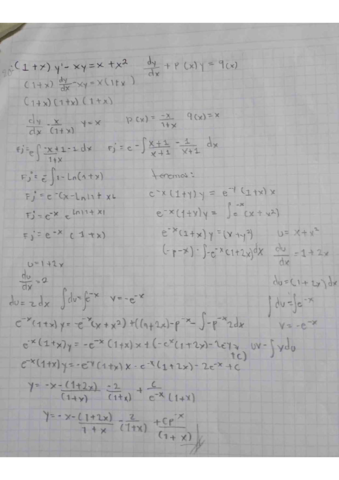 (1+x) y' - xy = x + x²   dy/dx + p(x) y = q(x)
(1+x) dy/dx - xy = x(1+x)
(1+x) (1+x) (1+x)
dy/dx - x/(1+x) y = x   p(x) = -x/1+x   q(x) = x
∫ -x+1-1 dx / 1+x   - ∫ x+1/x+1 - 1/x+1 dx
e^-x (1+x) y = e^-x (1+x) x
e^-x e^ln(1+x)   e^-x (1+x) y = ∫
e^-x (1+x)   e^-x (1+x) y = (x+x²)   u = x + x²
(-e^-x) - ∫ -e^-x (1+2x) dx   du/dx = 1+2x
u = 1+2x   du = (1+2x) dx
du/dx = 2   ∫ dv = ∫ e^-x
du = 2dx   ∫ dv = ∫ e^-x   v = -e^-x   v = -e^-x
e^-x (1+x) y = -e^-x (x+x²) + (1+2x) - e^-x - ∫ -e^-x 2dx
e^-x (1+x) y = -e^-x (1+x) x + (-e^-x (1+2x) - 2e^-x + c)   uv - ∫ v du
e^-x (1+x) y = -e^-x (1+x) x - e^-x (1+2x) - 2e^-x + c
y = -x - (1+2x)/(1+x) - 2/(1+x) + c/e^-x (1+x)
y = -x - (1+2x)/1+x - 2/(1+x) + ce^x/(1+x)